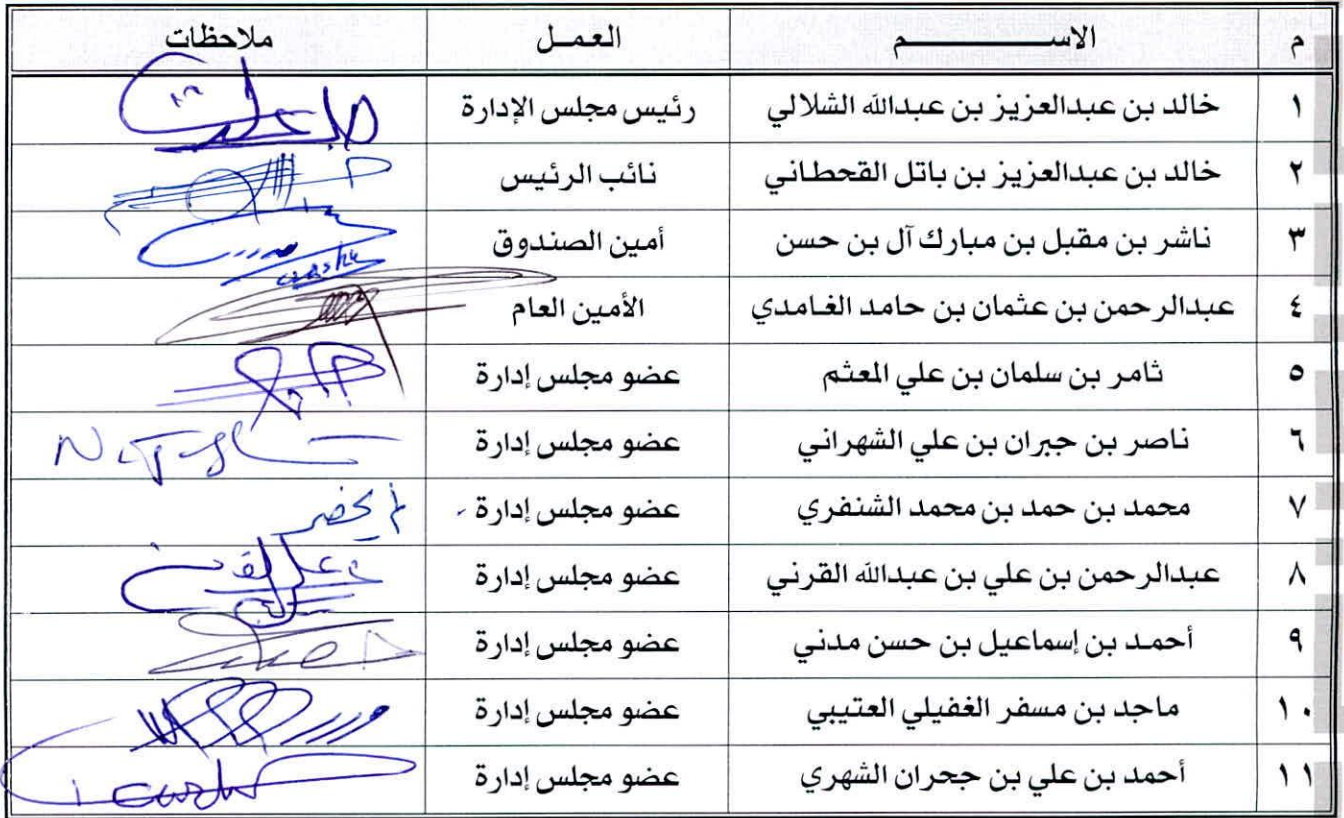 م الاســــــــــم العمـل ملاحظات
١ خالد بن عبدالعزيز بن عبدالله الشلالي رئيس مجلس الإدارة
٢ خالد بن عبدالعزيز بن باتل القحطاني نائب الرئيس
٣ ناشر بن مقبل بن مبارك آل بن حسن أمين الصندوق
٤ عبدالرحمن بن عثمان بن حامد الغامدي الأمين العام
٥ ثامر بن سلمان بن علي المعثم عضو مجلس إدارة
٦ ناصر بن جبران بن علي الشهراني عضو مجلس إدارة
٧ محمد بن حمد بن محمد الشنفري عضو مجلس إدارة
٨ عبدالرحمن بن علي بن عبدالله القرني عضو مجلس إدارة
٩ أحمد بن إسماعيل بن حسن مدني عضو مجلس إدارة
١٠ ماجد بن مسفر الغفيلي العتيبي عضو مجلس إدارة
١١ أحمد بن علي بن جحران الشهري عضو مجلس إدارة